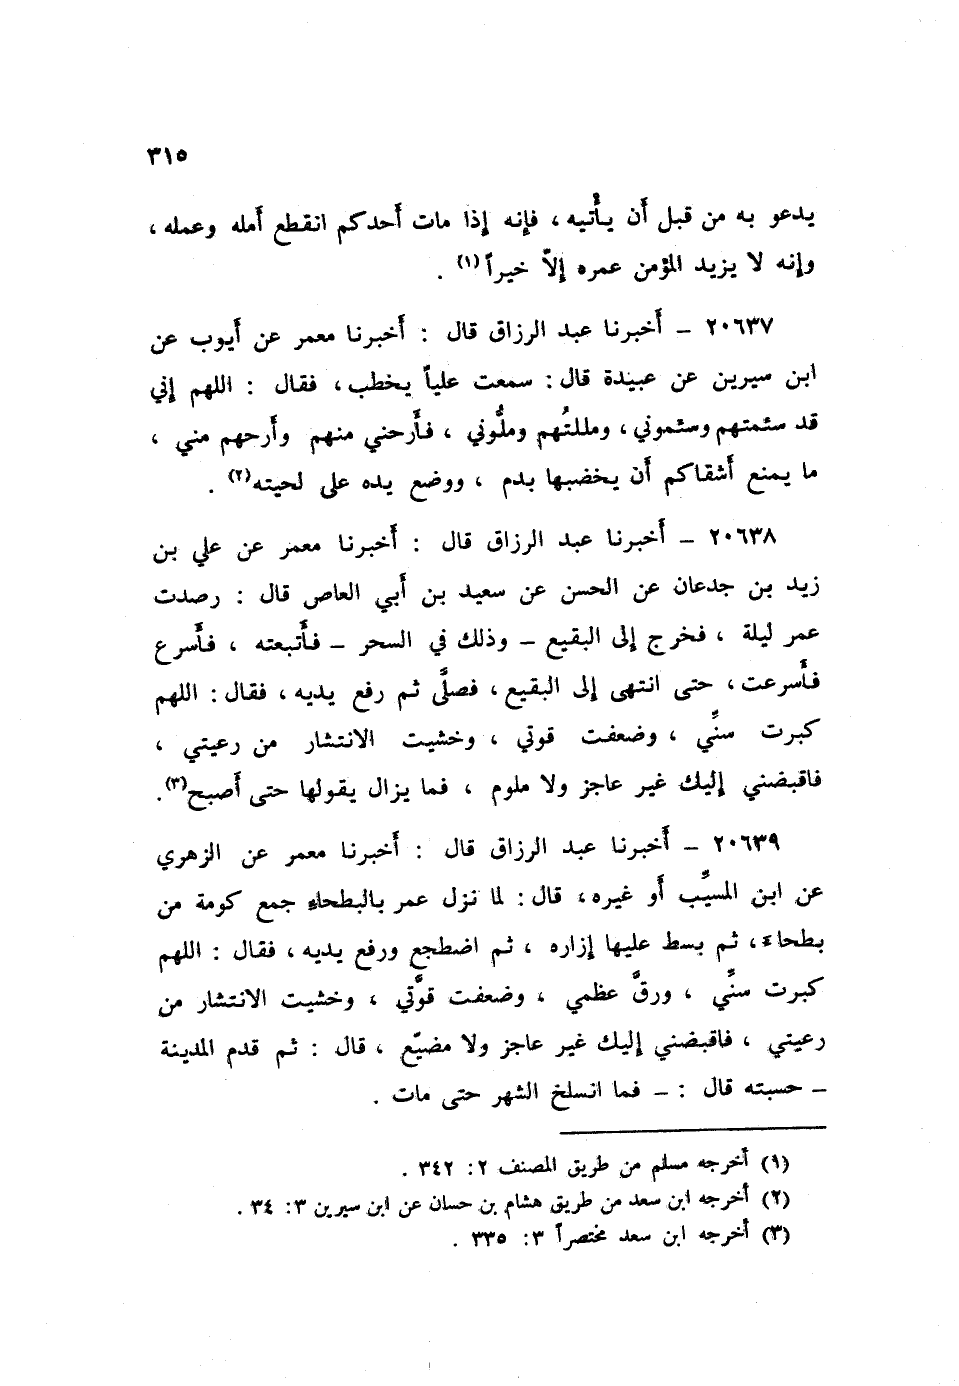 ٣١٥
يدعو به من قبل أن يأتيه ، فإنه إذا مات أحدكم انقطع أمله وعمله ،
وإنه لا يزيد المؤمن عمره إلاّ خيراً (١) .
٢٠٦٣٧ – أخبرنا عبد الرزاق قال : أخبرنا معمر عن أيوب عن
ابن سيرين عن عبيدة قال : سمعت علياً يخطب ، فقال : اللهم إني
قد سئمتهم وسئموني ، ومللتُهم وملُّوني ، فأرحني منهم وأرحهم مني ،
ما يمنع أشقاكم أن يخضبها بدم ، ووضع يده على لحيته (٢) .
٢٠٦٣٨ – أخبرنا عبد الرزاق قال : أخبرنا معمر عن علي بن
زيد بن جدعان عن الحسن عن سعيد بن أبي العاص قال : رصدت
عمر ليلة ، فخرج إلى البقيع – وذلك في السحر – فأتبعته ، فأسرع
فأسرعت ، حتى انتهى إلى البقيع ، فصلَّى ثم رفع يديه ، فقال : اللهم
كبرت سنِّي ، وضعفت قوتي ، وخشيت الانتشار من رعيتي ،
فاقبضني إليك غير عاجز ولا ملوم ، فما يزال يقولها حتى أصبح (٣) .
٢٠٦٣٩ – أخبرنا عبد الرزاق قال : أخبرنا معمر عن الزهري
عن ابن المسيِّب أو غيره ، قال : لما نزل عمر بالبطحاء جمع كومة من
بطحاء ، ثم بسط عليها إزاره ، ثم اضطجع ورفع يديه ، فقال : اللهم
كبرت سنِّي ، ورقَّ عظمي ، وضعفت قوَّتي ، وخشيت الانتشار من
رعيتي ، فاقبضني إليك غير عاجز ولا مضيّع ، قال : ثم قدم المدينة
– حسبته قال : – فما انسلخ الشهر حتى مات .
(١) أخرجه مسلم من طريق المصنف ٢ : ٣٤٢ .
(٢) أخرجه ابن سعد من طريق هشام بن حسان عن ابن سيرين ٣ : ٣٤ .
(٣) أخرجه ابن سعد مختصراً ٣ : ٣٣٥ .